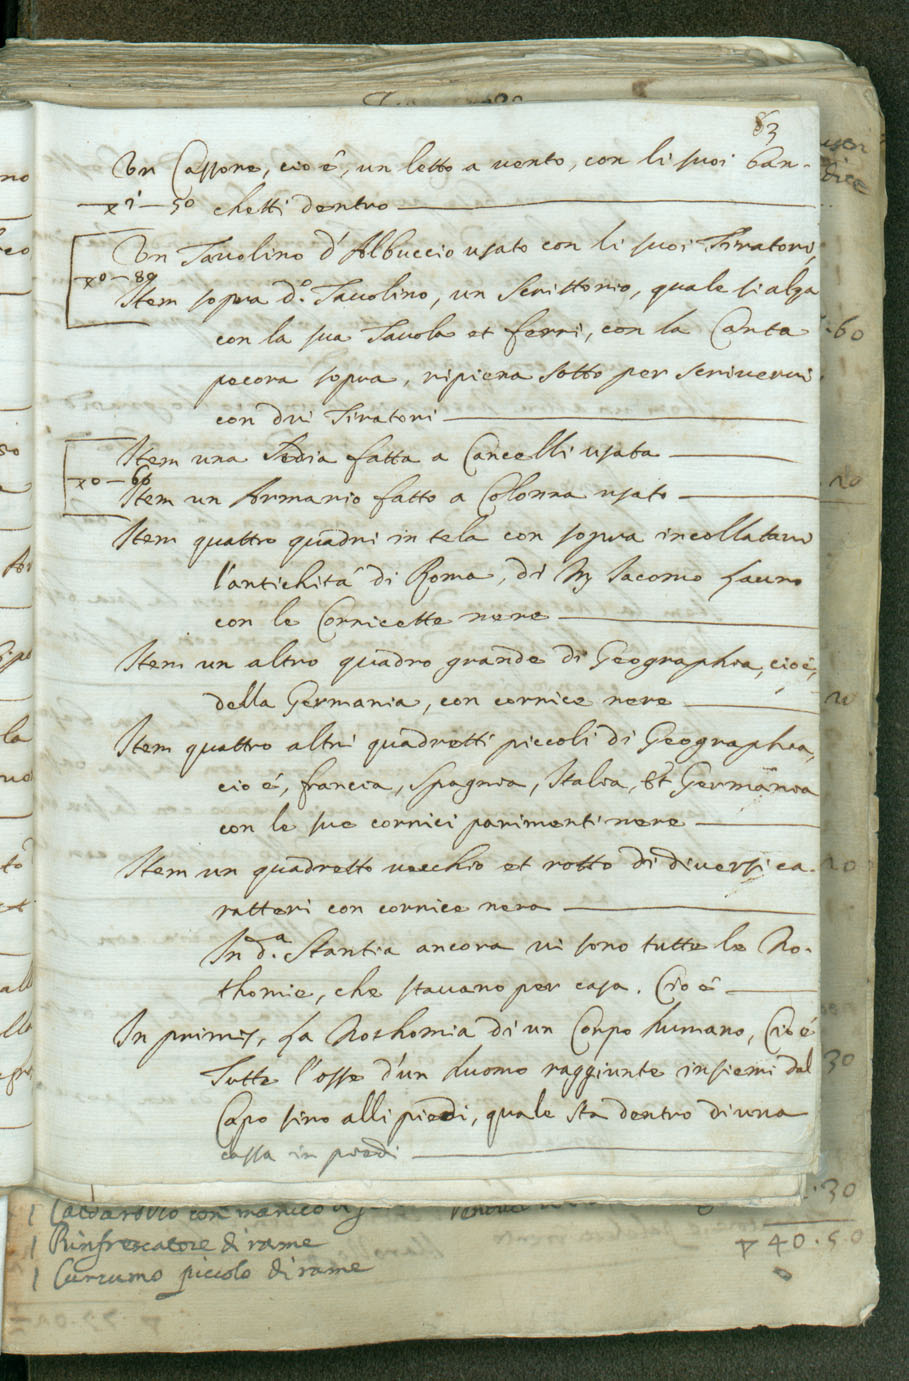 63
Un Cassone, cio è, un letto a vento, con li suoi ban-
1 — 50 chetti dentro
Un Tavolino d'Albuccio usato con li suoi Tiratori,
0 — 80
Item sopra d.º Tavolino, un Scrittorio, quale si alza
con la sua Tavola et ferri, con la Carta
pecora sopra, ripiena sotto per scrivervi
con dui Tiratori
Item una Sedia fatta a Cancelli usata
0 — 60
Item un Armario fatto a Colonna usato
Item quattro quadri in tela con sopra incollatavi
l'antichità di Roma, di Iacomo Lauro
con le Cornicette nere
Item un altro quadro grande di Geographia, cioè,
della Germania, con cornice nere
Item quattro altri quadretti piccoli di Geographia,
cio è, francia, Spagnia, Italia, et Germania
con le sue cornici parimenti nere
Item un quadretto vecchio et rotto di diversi ca-
ratteri con cornice nera
In d.ª Stantia ancora vi sono tutte le No-
thomie, che stavano per casa. Cio è
In primis, La Nothomia di un Corpo humano, Cioè
Tutte l'osse d'un huomo raggiunte insiemi dal
Capo sino alli piedi, quale sta dentro di una
cassa in piedi
1 Caldarozzo con manico
1 Rinfrescatore di rame
1 Cuccumo piccolo di rame
60
20
20
20
30
30
40.50